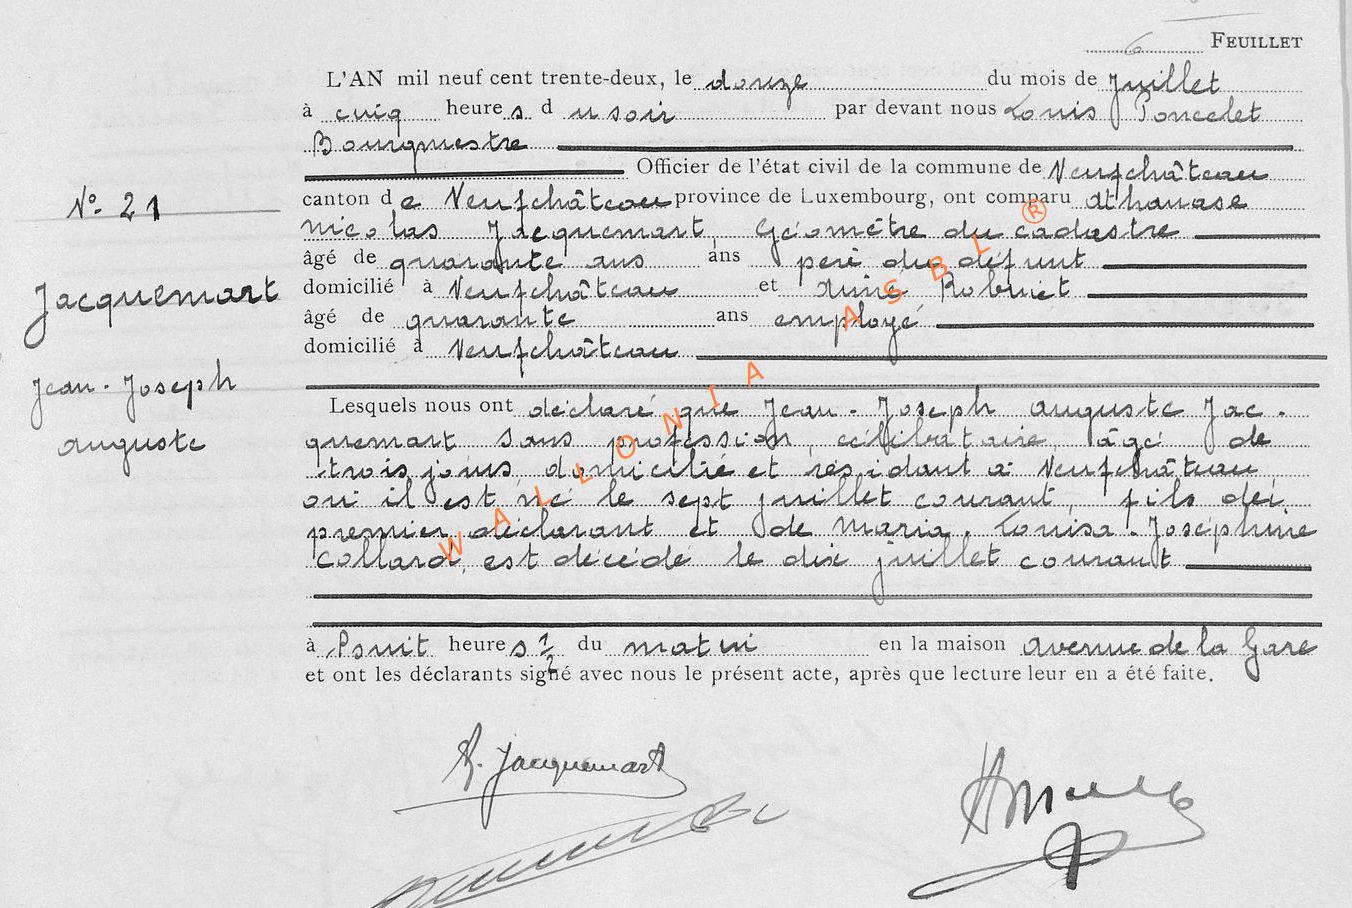 6 FEUILLET
L'AN mil neuf cent trente-deux, le douze du mois de Juillet
à cinq heures du soir par devant nous Louis Poncelet
Bourgmestre
Officier de l'état civil de la commune de Neufchâteau
N° 21
canton de Neufchâteau province de Luxembourg, ont comparu Athanase
Nicolas Jacquemart, Géomètre du cadastre
âgé de quarante ans ans père du défunt
Jacquemart
domicilié à Neufchâteau et Aimé
âgé de quarante ans employé
domicilié à Neufchâteau
Jean-Joseph
Auguste
Lesquels nous ont déclaré que Jean-Joseph Auguste Jac-
quemart sans profession célibataire âgé de
trois jours domicilié et résidant à Neufchâteau
où il est né le sept juillet courant, fils du
premier déclarant et de Maria Louisa Joséphine
Collard, est décédé le dix juillet courant
à huit heures 1/2 du matin en la maison Avenue de la Gare
et ont les déclarants signé avec nous le présent acte, après que lecture leur en a été faite.
WALLONIA ASBL ®
A. Jacquemart